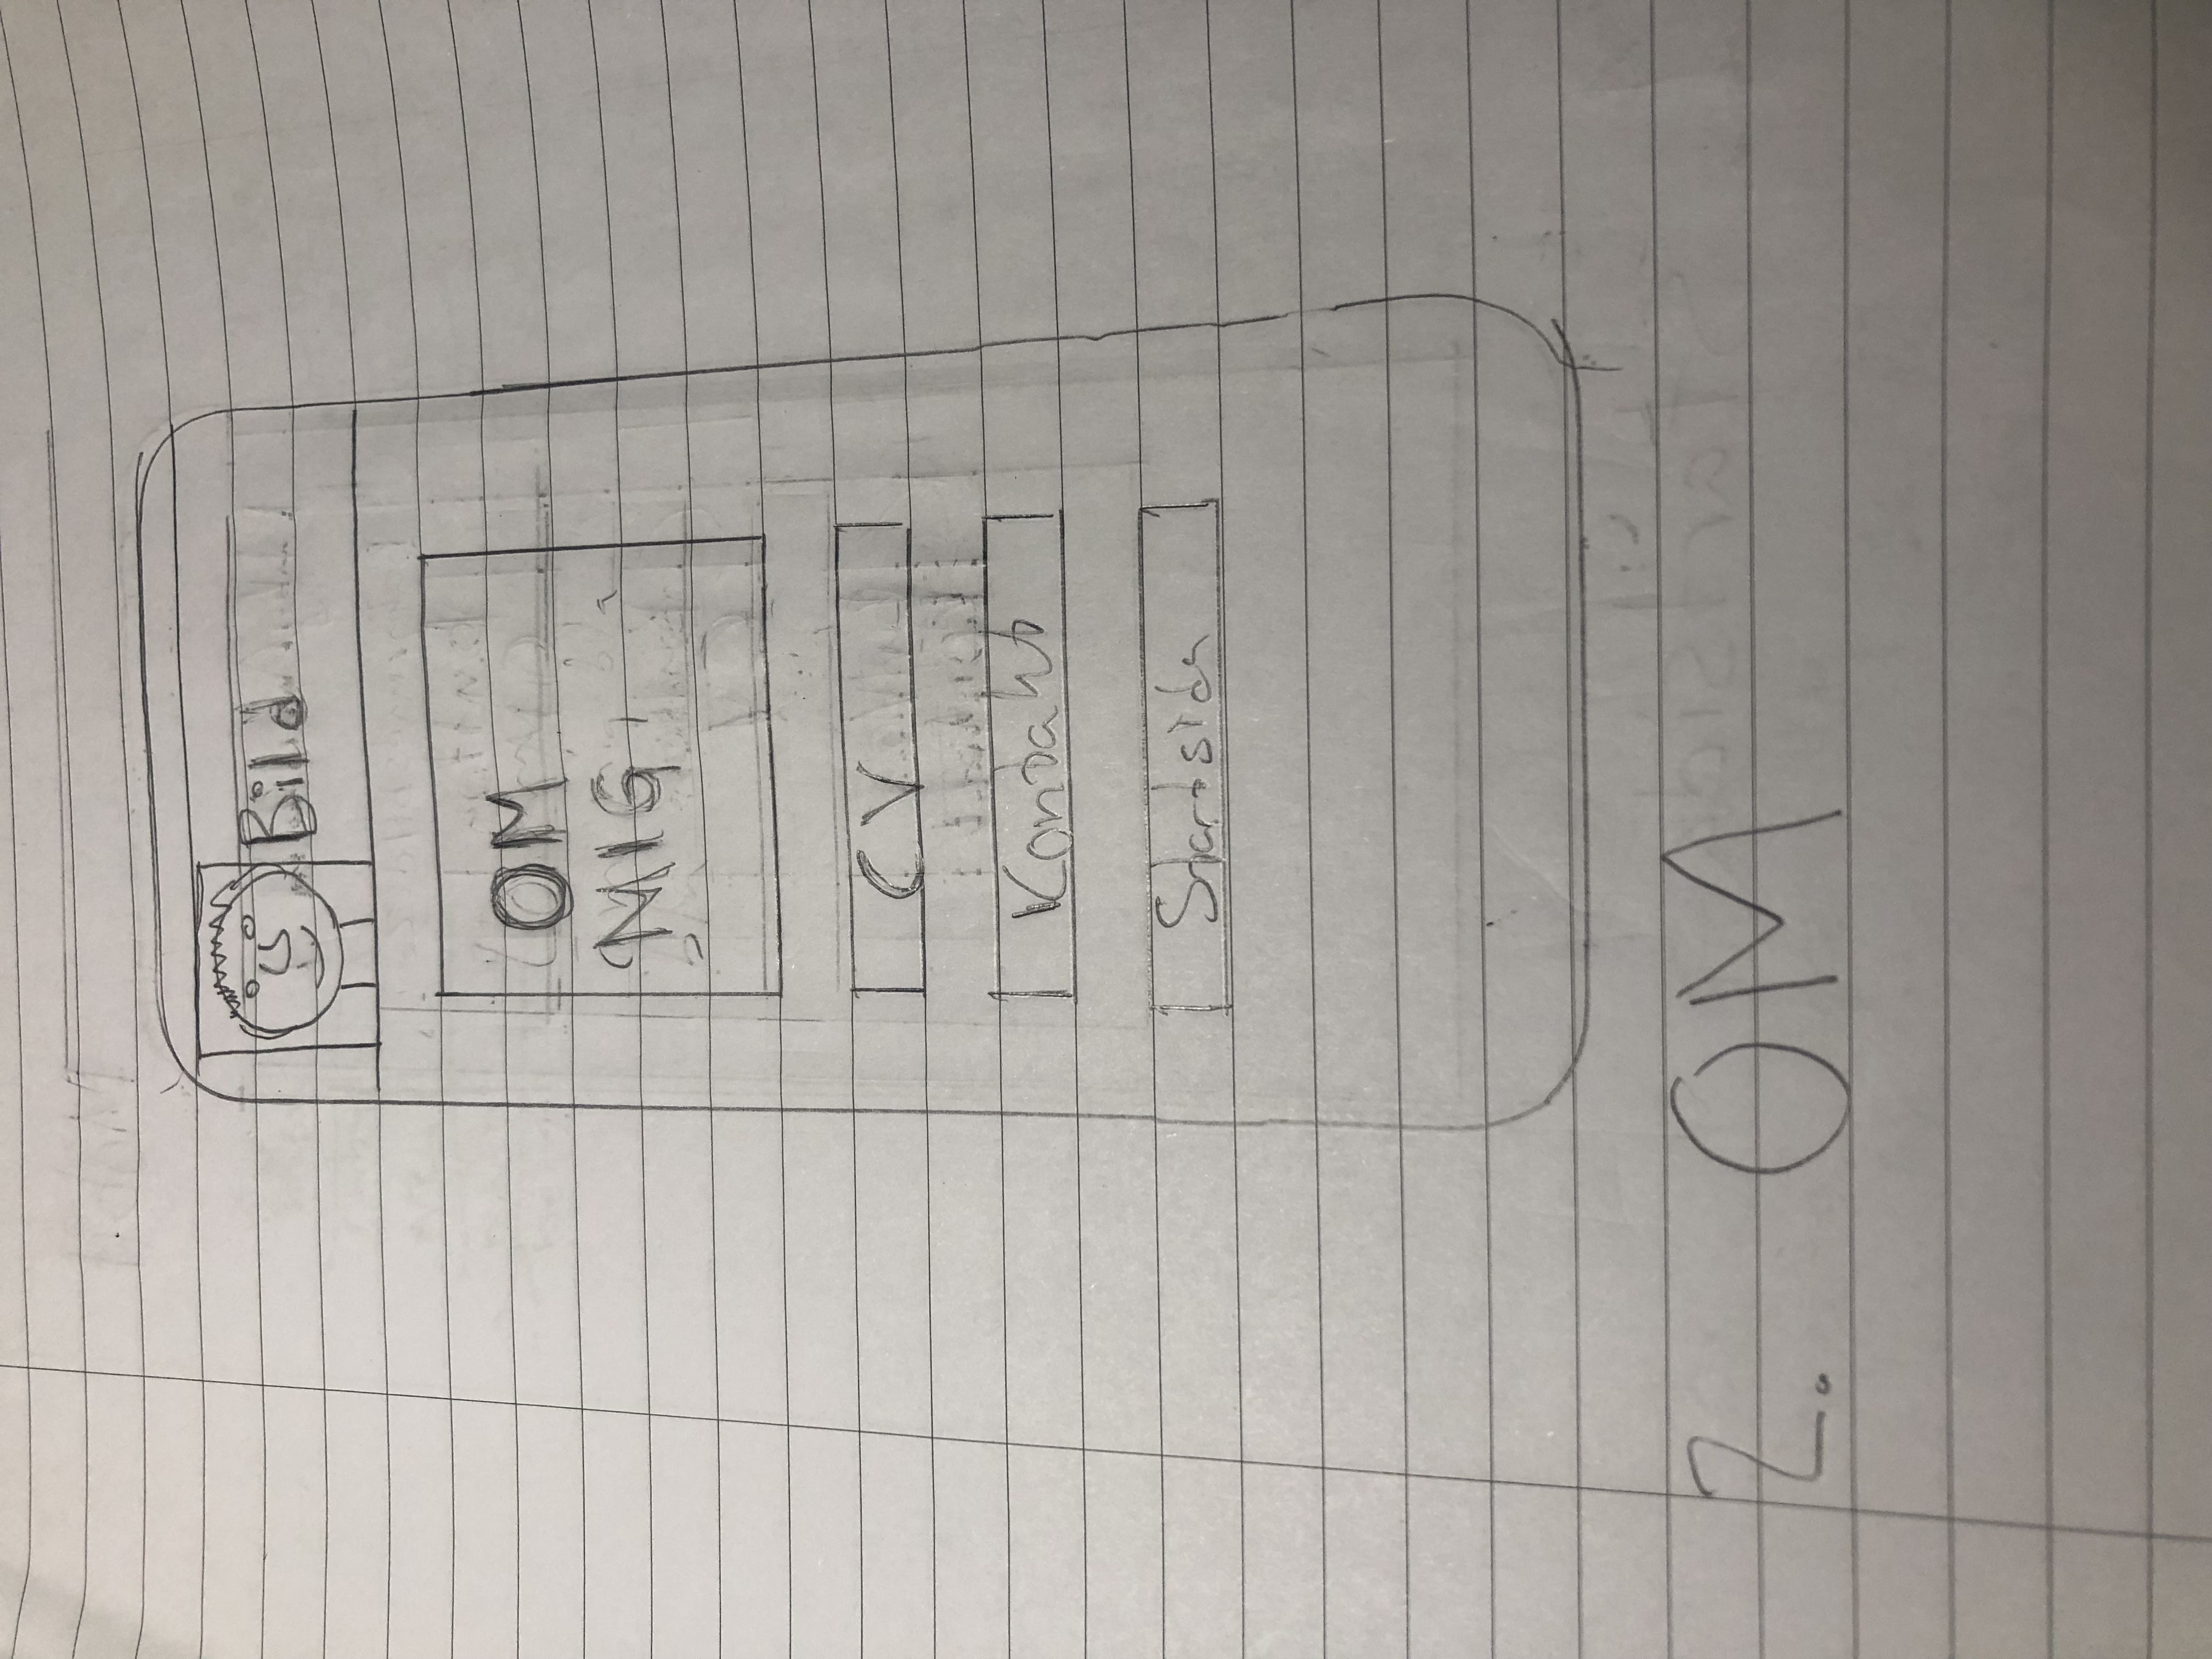 Bild
OM
MIG
CV
Kontakt
Startsida
2. OM